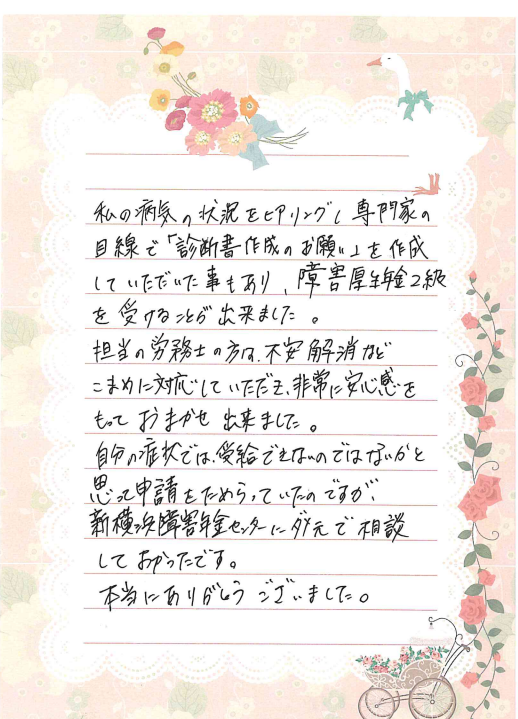 私の病気の状況をヒアリングし専門家の
目線で「診断書作成のお願い」を作成
していただいた事もあり、障害厚生年金2級
を受けることが出来ました。
担当の労務士の方は、不安解消など
こまめに対応していただき、非常に安心感を
もっておまかせ出来ました。
自分の症状では、受給できないのではないかと
思って申請をためらっていたのですが、
新横浜障害年金センターにダメ元で相談
してよかったです。
本当にありがとうございました。